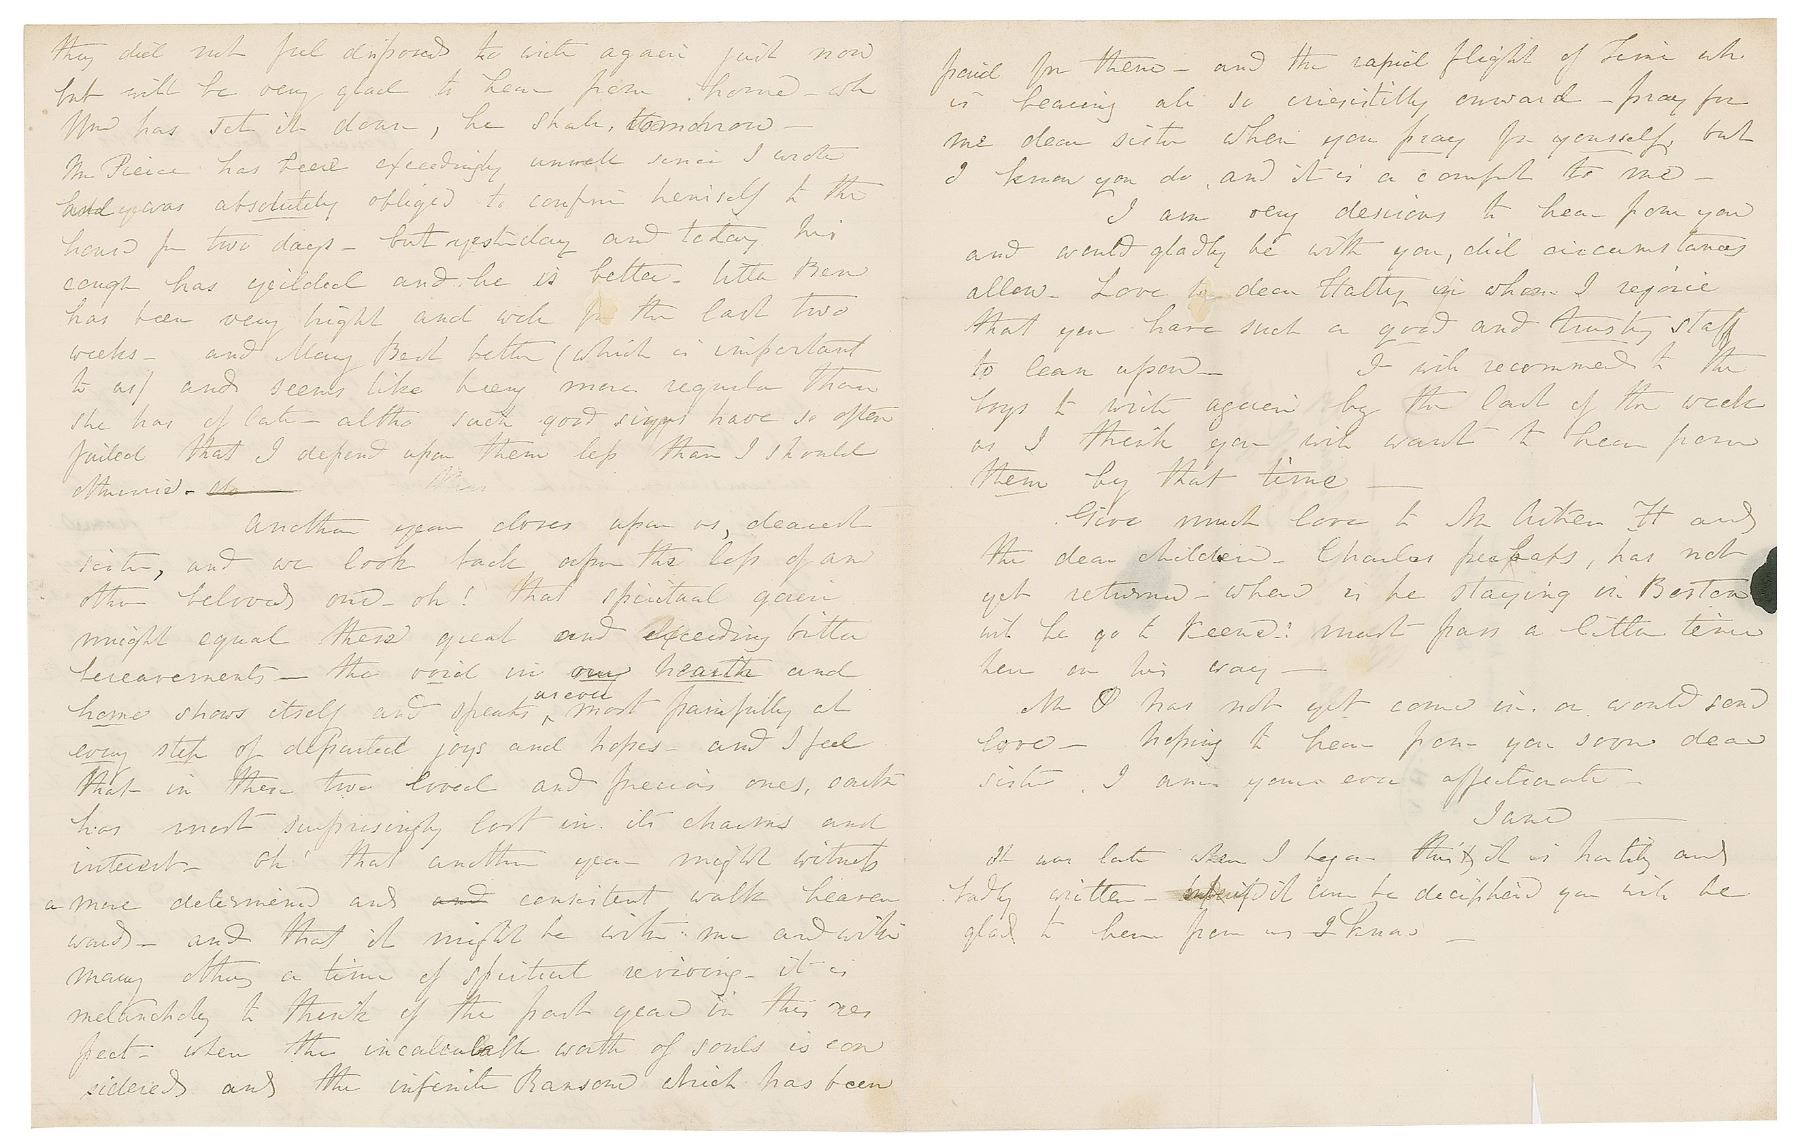 they did not feel disposed to write again just now
but will be very glad to hear from home – wh
Wm has set it down, he shall, tomorrow –
Mr Pierce has been exceedingly unwell since I wrote
and was absolutely obliged to confine himself to the
house for two days – but yesterday and today his
cough has yeilded and he is better – little Ben
has been very bright and well for the last two
weeks – and Mary Best better (which is important
to us) and seems like being more regular than
she has of late – altho such good signs have so often
failed that I depend upon them less than I should
otherwise –
Another year closes upon us, dearest
sister, and we look back upon the loss of an
other beloved one – oh! that spiritual gain
might equal these great and exceeding bitter
bereavements – the void in our hearth and
home shows itself and speaks most painfully at
every step of departed joys and hopes – and I feel
that in these two loved and precious ones, earth
has most surprisingly lost in its charms and
interest – oh! that another year might witness
a more determined and and consistent walk heaven
ward – and that it might be with me and with
many others a time of spiritual reviving – it is
melancholy to think of the past year in this res
pect – when the incalculable worth of souls is con
sidered and the infinite Ransom which has been
paid for them – and the rapid flight of Time wh.
is bearing all so irresistibly onward – pray for
me dear sister when you pray for yourself, but
I know you do, and it is a comfort to me –
I am very desirous to hear from you
and would gladly be with you, did circumstances
allow – Love to dear Hatty in whom I rejoice
that you have such a good and trusty staff
to lean upon – I will recommend to the
boys to write again by the last of the week
as I think you will want to hear from
them by that time –
Give much love to Mr Aiken H and
the dear children – Charles perhaps, has not
yet returned – where is he staying in Boston
will he go to Keene? must pass a little time
here on his way –
Mr P has not yet come in. or would send
love – hoping to hear from you soon dear
sister, I am yours ever affectionate –
Jane
It was late when I began this & it is hastily and
badly written – if it can be deciphered you will be
glad to hear from us I know –